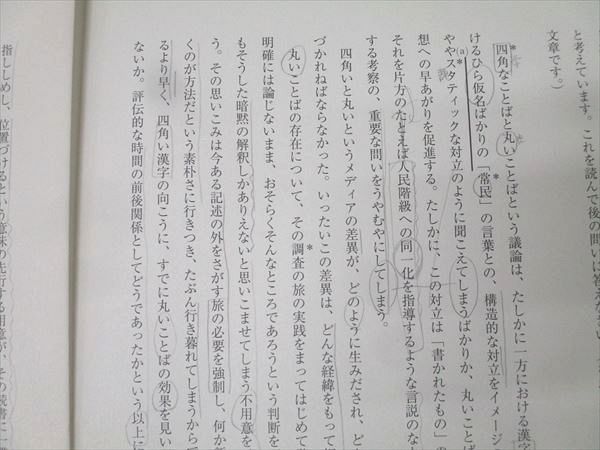 と考えています。これを読んで後の問いに答えなさい
文章です。）
四角なことばと丸いことばという議論は、たしかに一方における漢字
けるひら仮名ばかりの「常民」の言葉との、構造的な対立をイメージ
(a)
ややスタティックな対立のように聞こえてしまうばかりか、丸いことば
想への早あがりを促進する。たしかに、この対立は「書かれたもの」の
それを片方のたとえば人民階級への同一化を指導するような言説のな
する考察の、重要な問いをうやむやにしてしまう。
四角いと丸いというメディアの差異が、どのように生みだされ、ど
づかれねばならなかった。いったいこの差異は、どんな経緯をもって
丸いことばの存在について、その調査の旅の実践をまってはじめて
明確には論じないまま、おそらくそんなところであろうという判断を
もそうした暗黙の解釈しかありえないと思いこませてしまう不用意を
う。その思いこみは今ある記述の外をさがす旅の必要を強制し、何か
くのが方法だという素朴さに行きつき、たぶん行き暮れてしまうから
るより早く、四角い漢字の向こうに、すでに丸いことばの効果を見い
ないか。評伝的な時間の前後関係としてどうであったかという以上に
指ししめし、位置づけるという意味の先行する用意が、その読書に